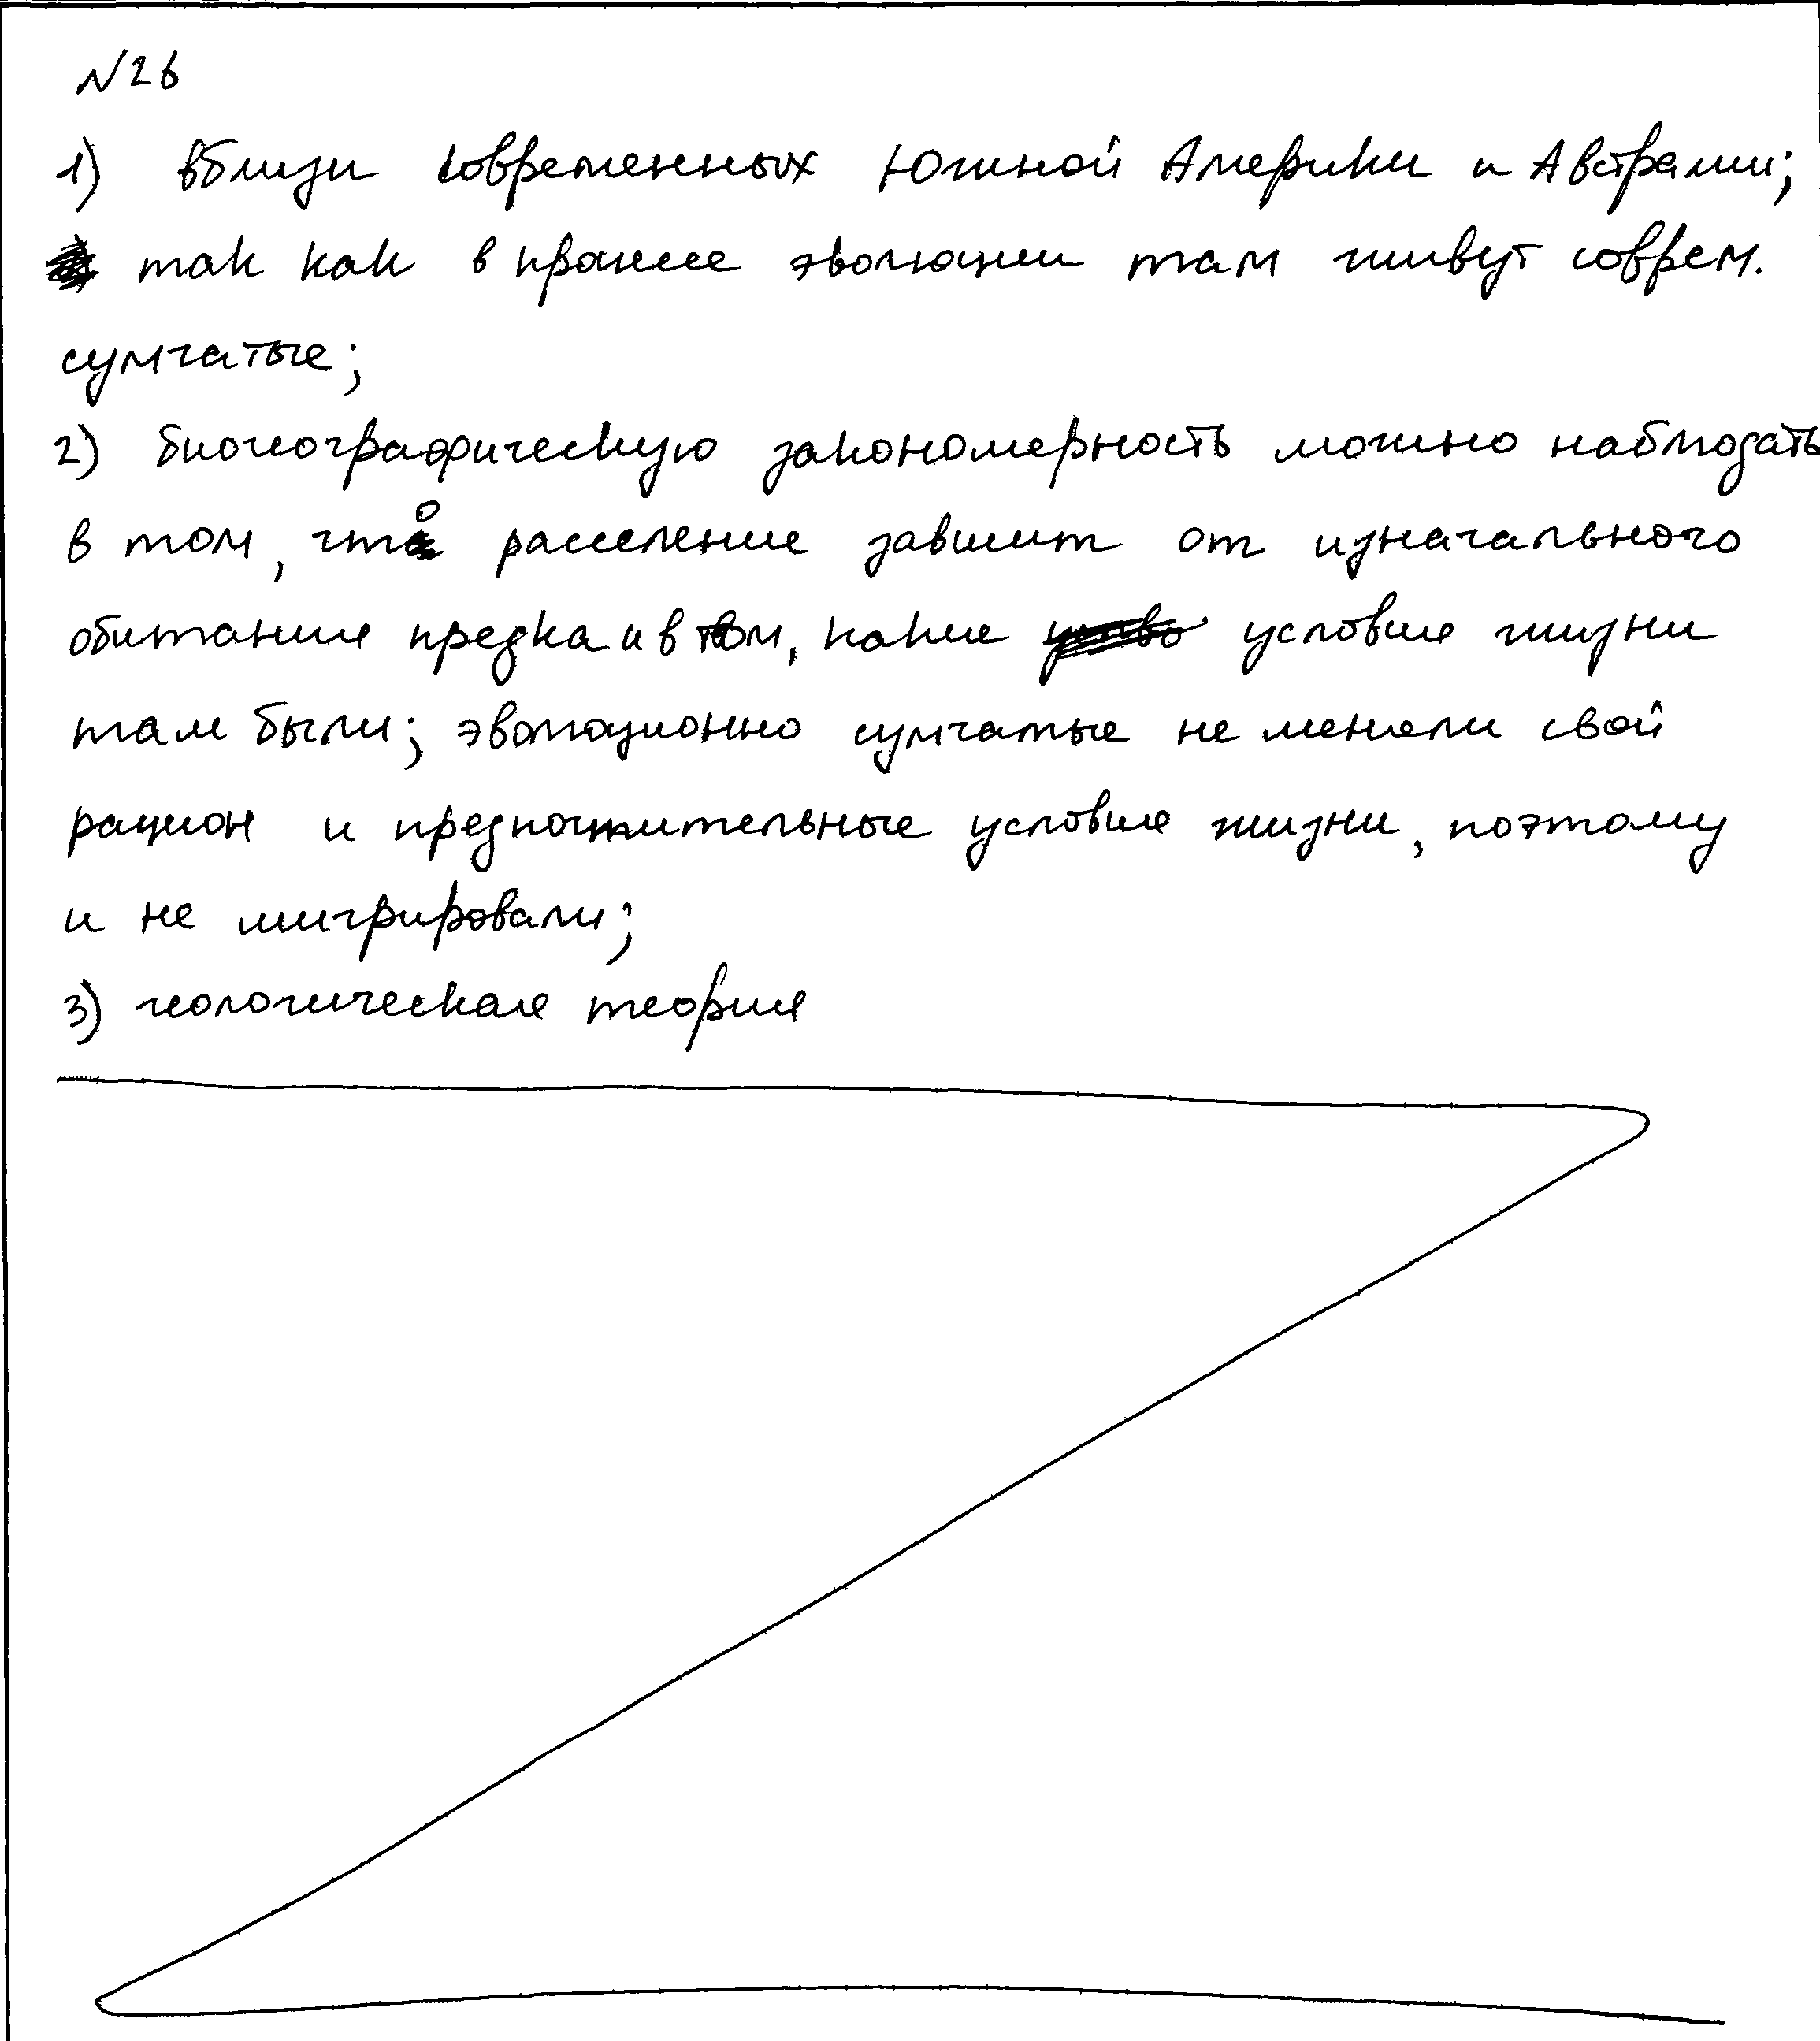 №26
1) вблизи современных Южной Америки и Австралии;
так как в процессе эволюции там живут соврем.
сумчатые;
2) биогеографическую закономерность можно наблюдать
в том, что расселение зависит от изначального
обитания предка и в том, какие условия жизни
там были; эволюционно сумчатые не меняли свой
рацион и предпочтительные условия жизни, поэтому
и не мигрировали;
3) геологическая теория